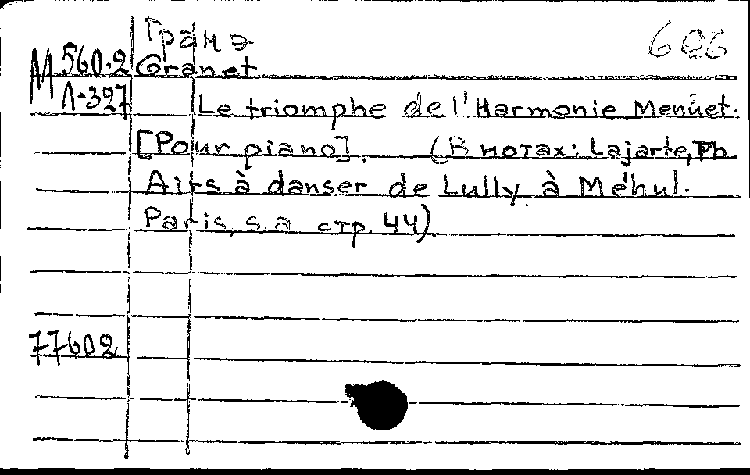 Гранэ 606
М 560.2 Granet
Л-327 Le triomphe de l'Harmonie Menuet.
[Pour piano]. (В нотах: Lajarte, Th.
Airs à danser de Lully à Méhul.
Paris, s.a стр. 44)
77602